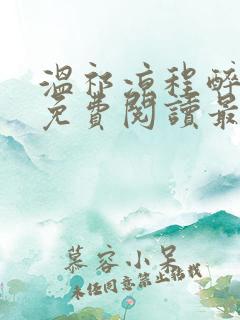 温祁凉程醉
免費閱讀最
慕容小呆
未经同意禁止转载